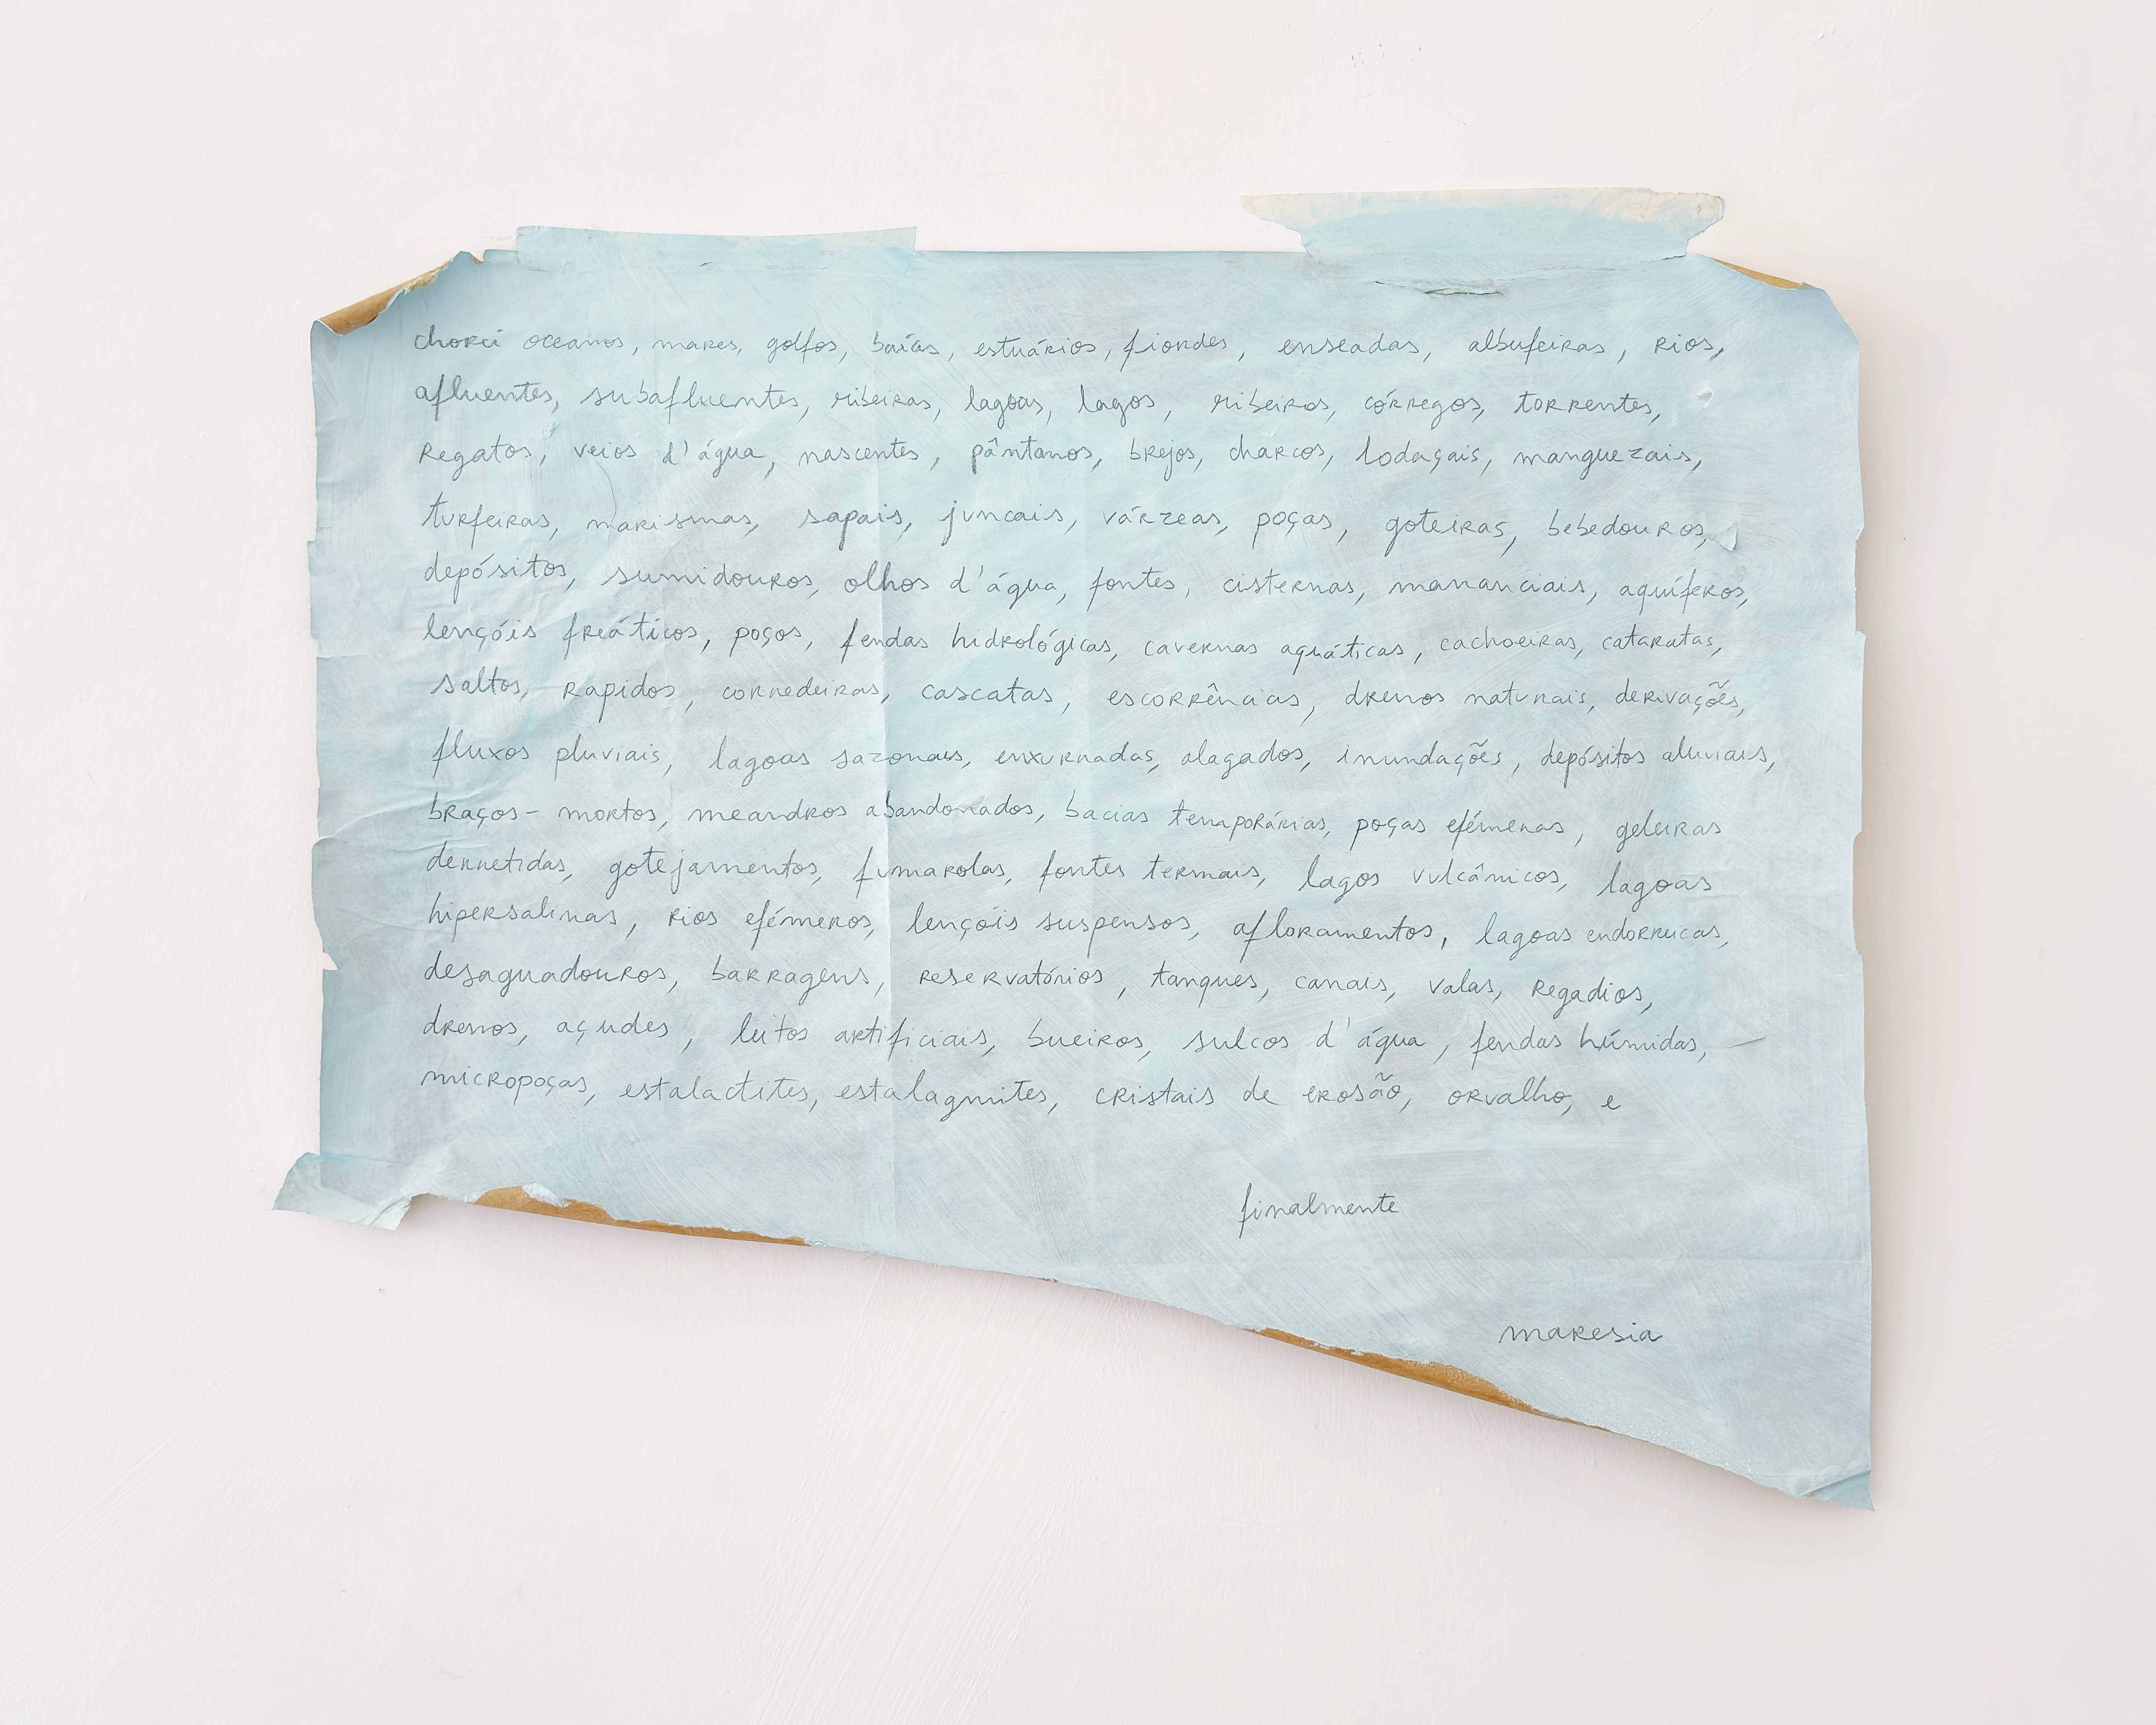 chorei oceanos, mares, golfos, baías, estuários, fiordes, enseadas, albufeiras, rios,
afluentes, subafluentes, ribeiras, lagoas, lagos, ribeiros, córregos, torrentes,
regatos, veios d'água, nascentes, pântanos, brejos, charcos, lodaçais, manguezais,
turfeiras, marismas, sapais, juncais, várzeas, poças, goteiras, bebedouros,
depósitos, sumidouros, olhos d'água, fontes, cisternas, mananciais, aquíferos,
lençóis freáticos, poços, fendas hidrológicas, cavernas aquáticas, cachoeiras, cataratas,
saltos, rapidos, corredeiras, cascatas, escorrências, drenos naturais, derivações,
fluxos pluviais, lagoas sazonais, enxurradas, alagados, inundações, depósitos aluviais,
braços-mortos, meandros abandonados, bacias temporárias, poças efémeras, geleiras
derretidas, gotejamentos, fumarolas, fontes termais, lagos vulcânicos, lagoas
hipersalinas, rios efémeros, lençóis suspensos, afloramentos, lagoas endorreicas,
desaguadouros, barragens, reservatórios, tanques, canais, valas, regadios,
drenos, açudes, leitos artificiais, bueiros, sulcos d'água, fendas húmidas, —
micropoças, estalactites, estalagmites, cristais de erosão, orvalho, e
finalmente
maresia